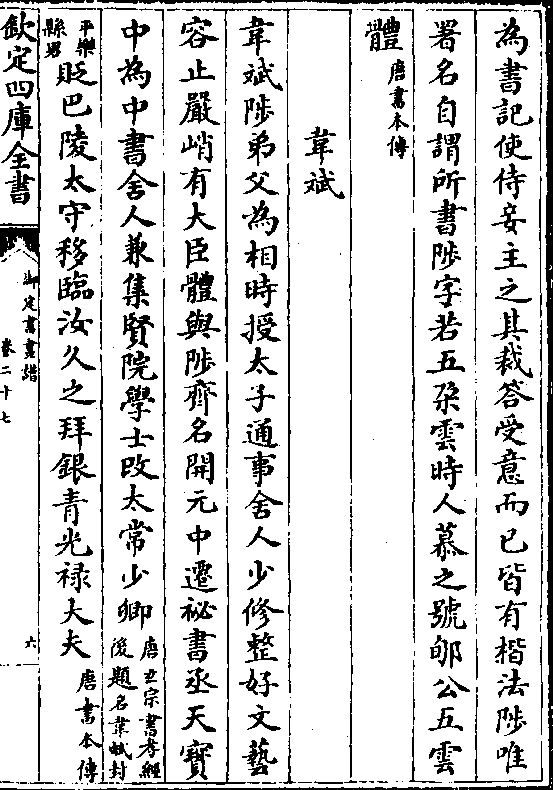 為書記使侍妾主之其裁答受意而已皆有楷法陟唯
署名自謂所書陟字若五朶雲時人慕之號郇公五雲
體唐書本傳
韋斌
韋斌陟弟父為相時授太子通事舍人少修整好文藝
容止嚴峭有大臣體與陟齊名開元中遷祕書丞天寶
中為中書舍人兼集賢院學士改太常少卿唐玄宗書孝經後題名韋斌封
平樂縣男貶巴陵太守移臨汝久之拜銀青光禄大夫唐書本傳
欽定四庫全書
御定書畫譜
卷二十七
六